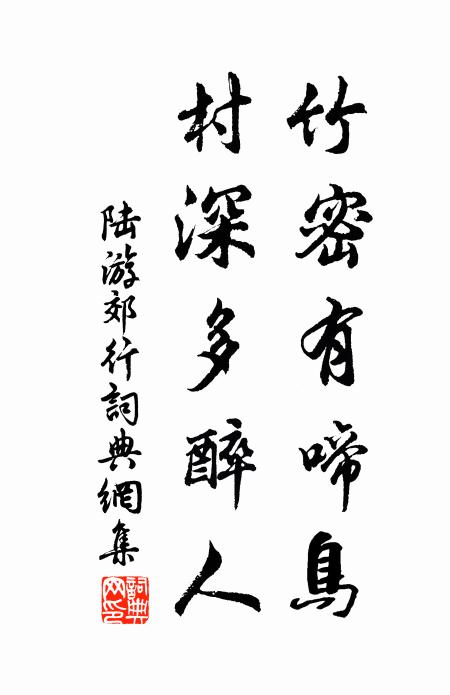 竹密有啼鳥
村深多醉人
陆游郊行詞典網集
詞典网印